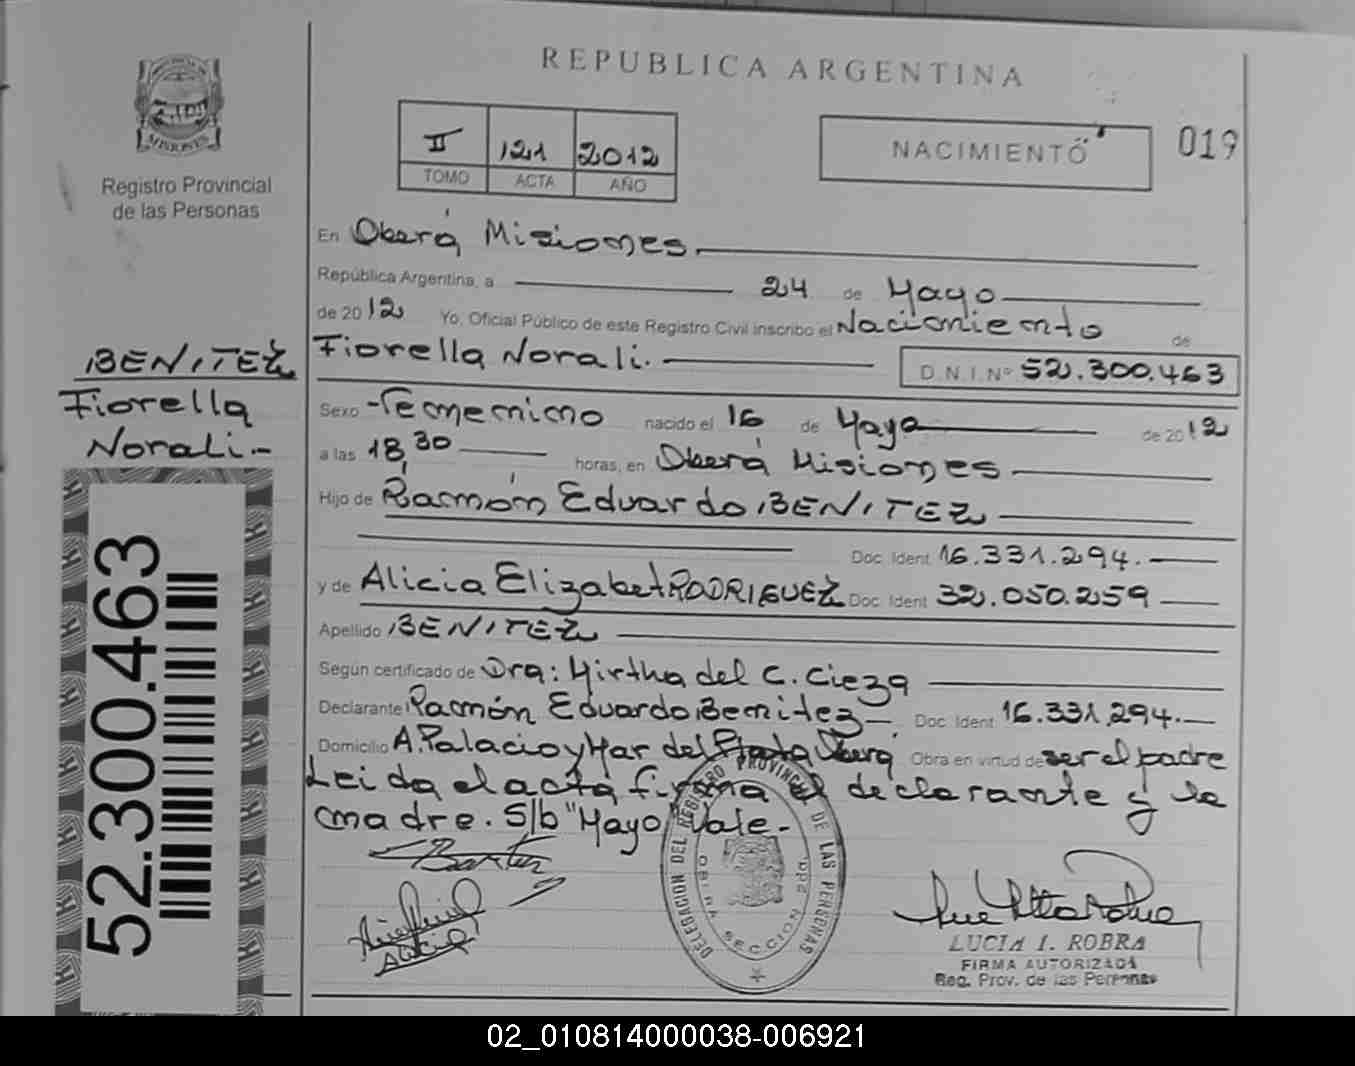 REPUBLICA ARGENTINA
MISIONES
Registro Provincial
de las Personas
II 121 2012
TOMO ACTA AÑO
NACIMIENTO
019
En Oberá Misiones
República Argentina, a 24 de Mayo
de 2012 Yo, Oficial Público de este Registro Civil inscribo el Nacimiento de
Fiorella Norali.- D.N.I.Nº 52.300.463
BENITEZ
Fiorella
Norali.-
Sexo Femenino nacido el 16 de Mayo de 2012
a las 18,30 horas, en Oberá Misiones
Hijo de Ramón Eduardo BENITEZ
Doc. Ident. 16.331.294.-
y de Alicia Elizabet RODRIGUEZ Doc. Ident. 32.050.259
Apellido BENITEZ
Según certificado de Dra: Mirtha del C. Cieza
Declarante Ramón Eduardo Benitez Doc. Ident. 16.331.294.-
Domicilio A. Palacio y Mar del Plata Oberá Obra en virtud de ser el padre
Leida el acta firma el declarante y la
madre. S/b "Mayo" Vale.-
52.300.463
DELEGACION DEL REGISTRO PROVINCIAL DE LAS PERSONAS
SECCION
Alicia
LUCIA I. ROBRA
FIRMA AUTORIZADA
Reg. Prov. de las Personas
02_010814000038-006921